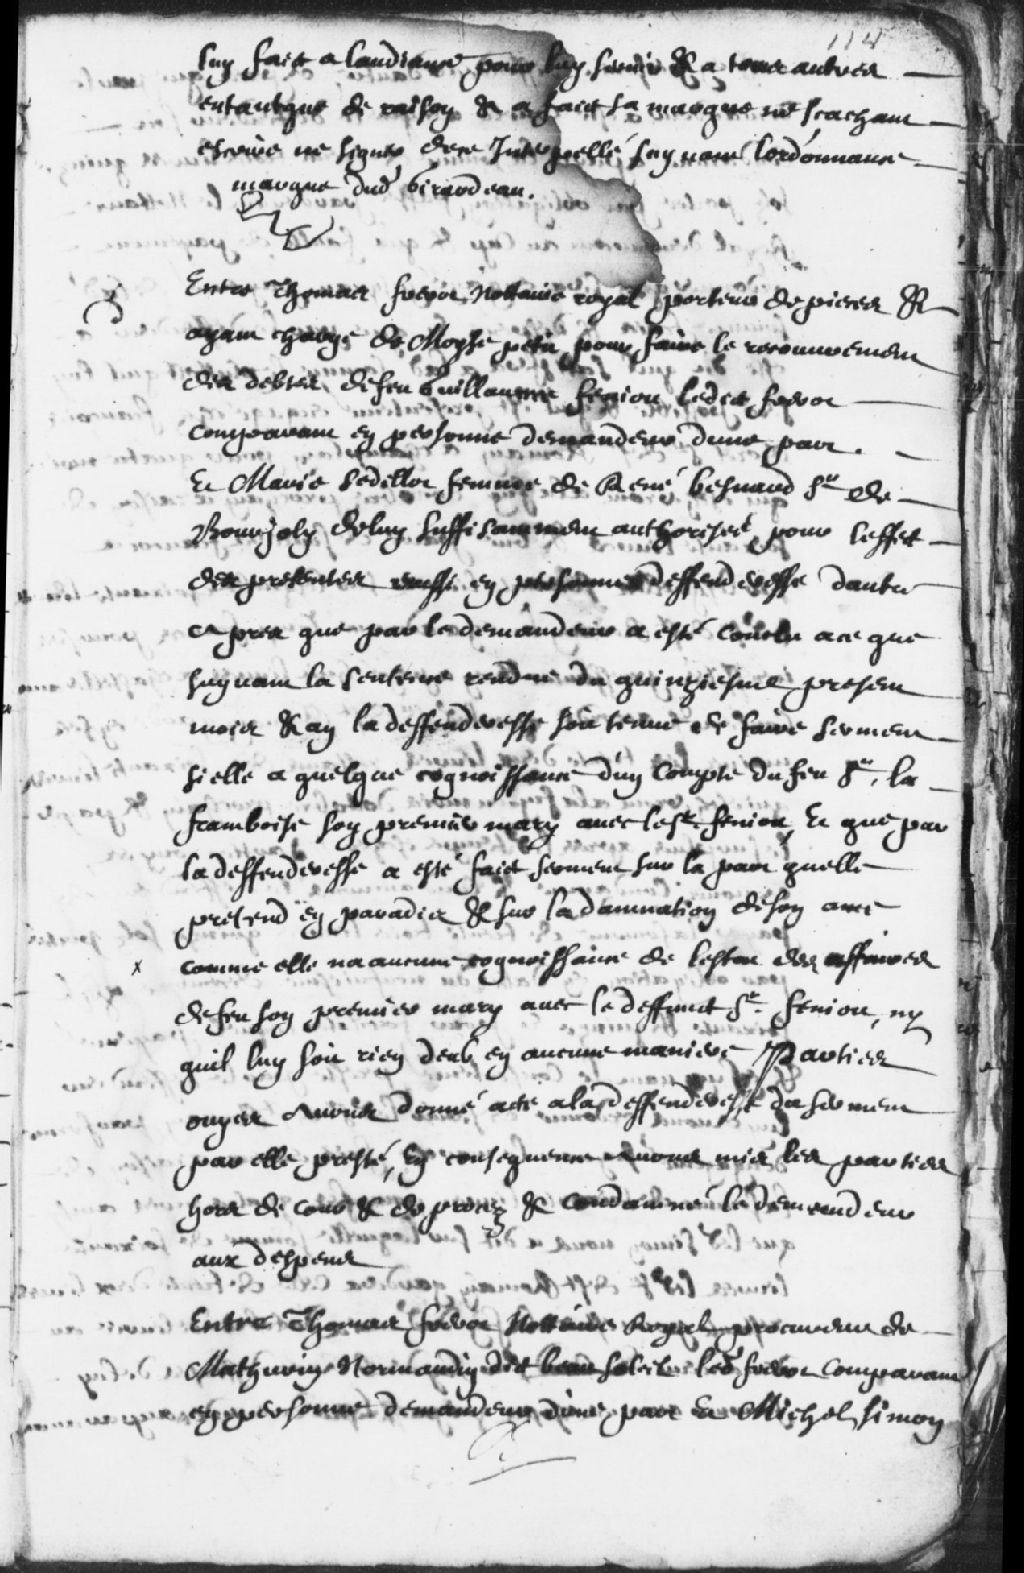 114
luy faict a laudiance pour luy servir & a tous autres
entantque de raison & a faict sa marque ne scachant
escrire ne signer de ce Interpellé suyvant lordonnance
marque dud Girardeau.
Entre Thomas frerot Nottaire royal porteur de pieces &
ayant charge de Moyse petit pour faire le recouvrement
des debtes defeu Guillaume fenion ledit frerot
comparant en personne demandeur dune part.
Et Marie Sedillot femme de René besnard Sr de
Bourjoly deluy suffisamment authorisée pour leffet
des presentes aussi en personne deffenderesse dautre
apres que par le demandeur a esté conclu a ce que
suyvant la sentence rendue du quinziesme present
mois & an la deffenderesse soit tenue de faire serment
si elle a quelque cognoissance dun Compte du feu Sr la
framboise son premier mary avec le Sr fenion, Et que par
la deffenderesse a esté faict serment sur la part quelle
pretend en paradis & sur la damnation deson ame
x comme elle na aucune cognoissance de lestat des affaires
defeu son premier mary avec le deffunct Sr fenion, ny
quil luy soit rien deub en aucune maniere Parties
ouyes Avons donné acte a la deffenderesse du serment
par elle presté, En consequence Avons mis les parties
hors de cour & de proces & condamné le demandeur
aux despens
Entre Thomas frerot Nottaire Royal procureur de
Mathurin Normandin dit beausoleil led frerot comparant
en personne demandeur dune part Et Michel Simon